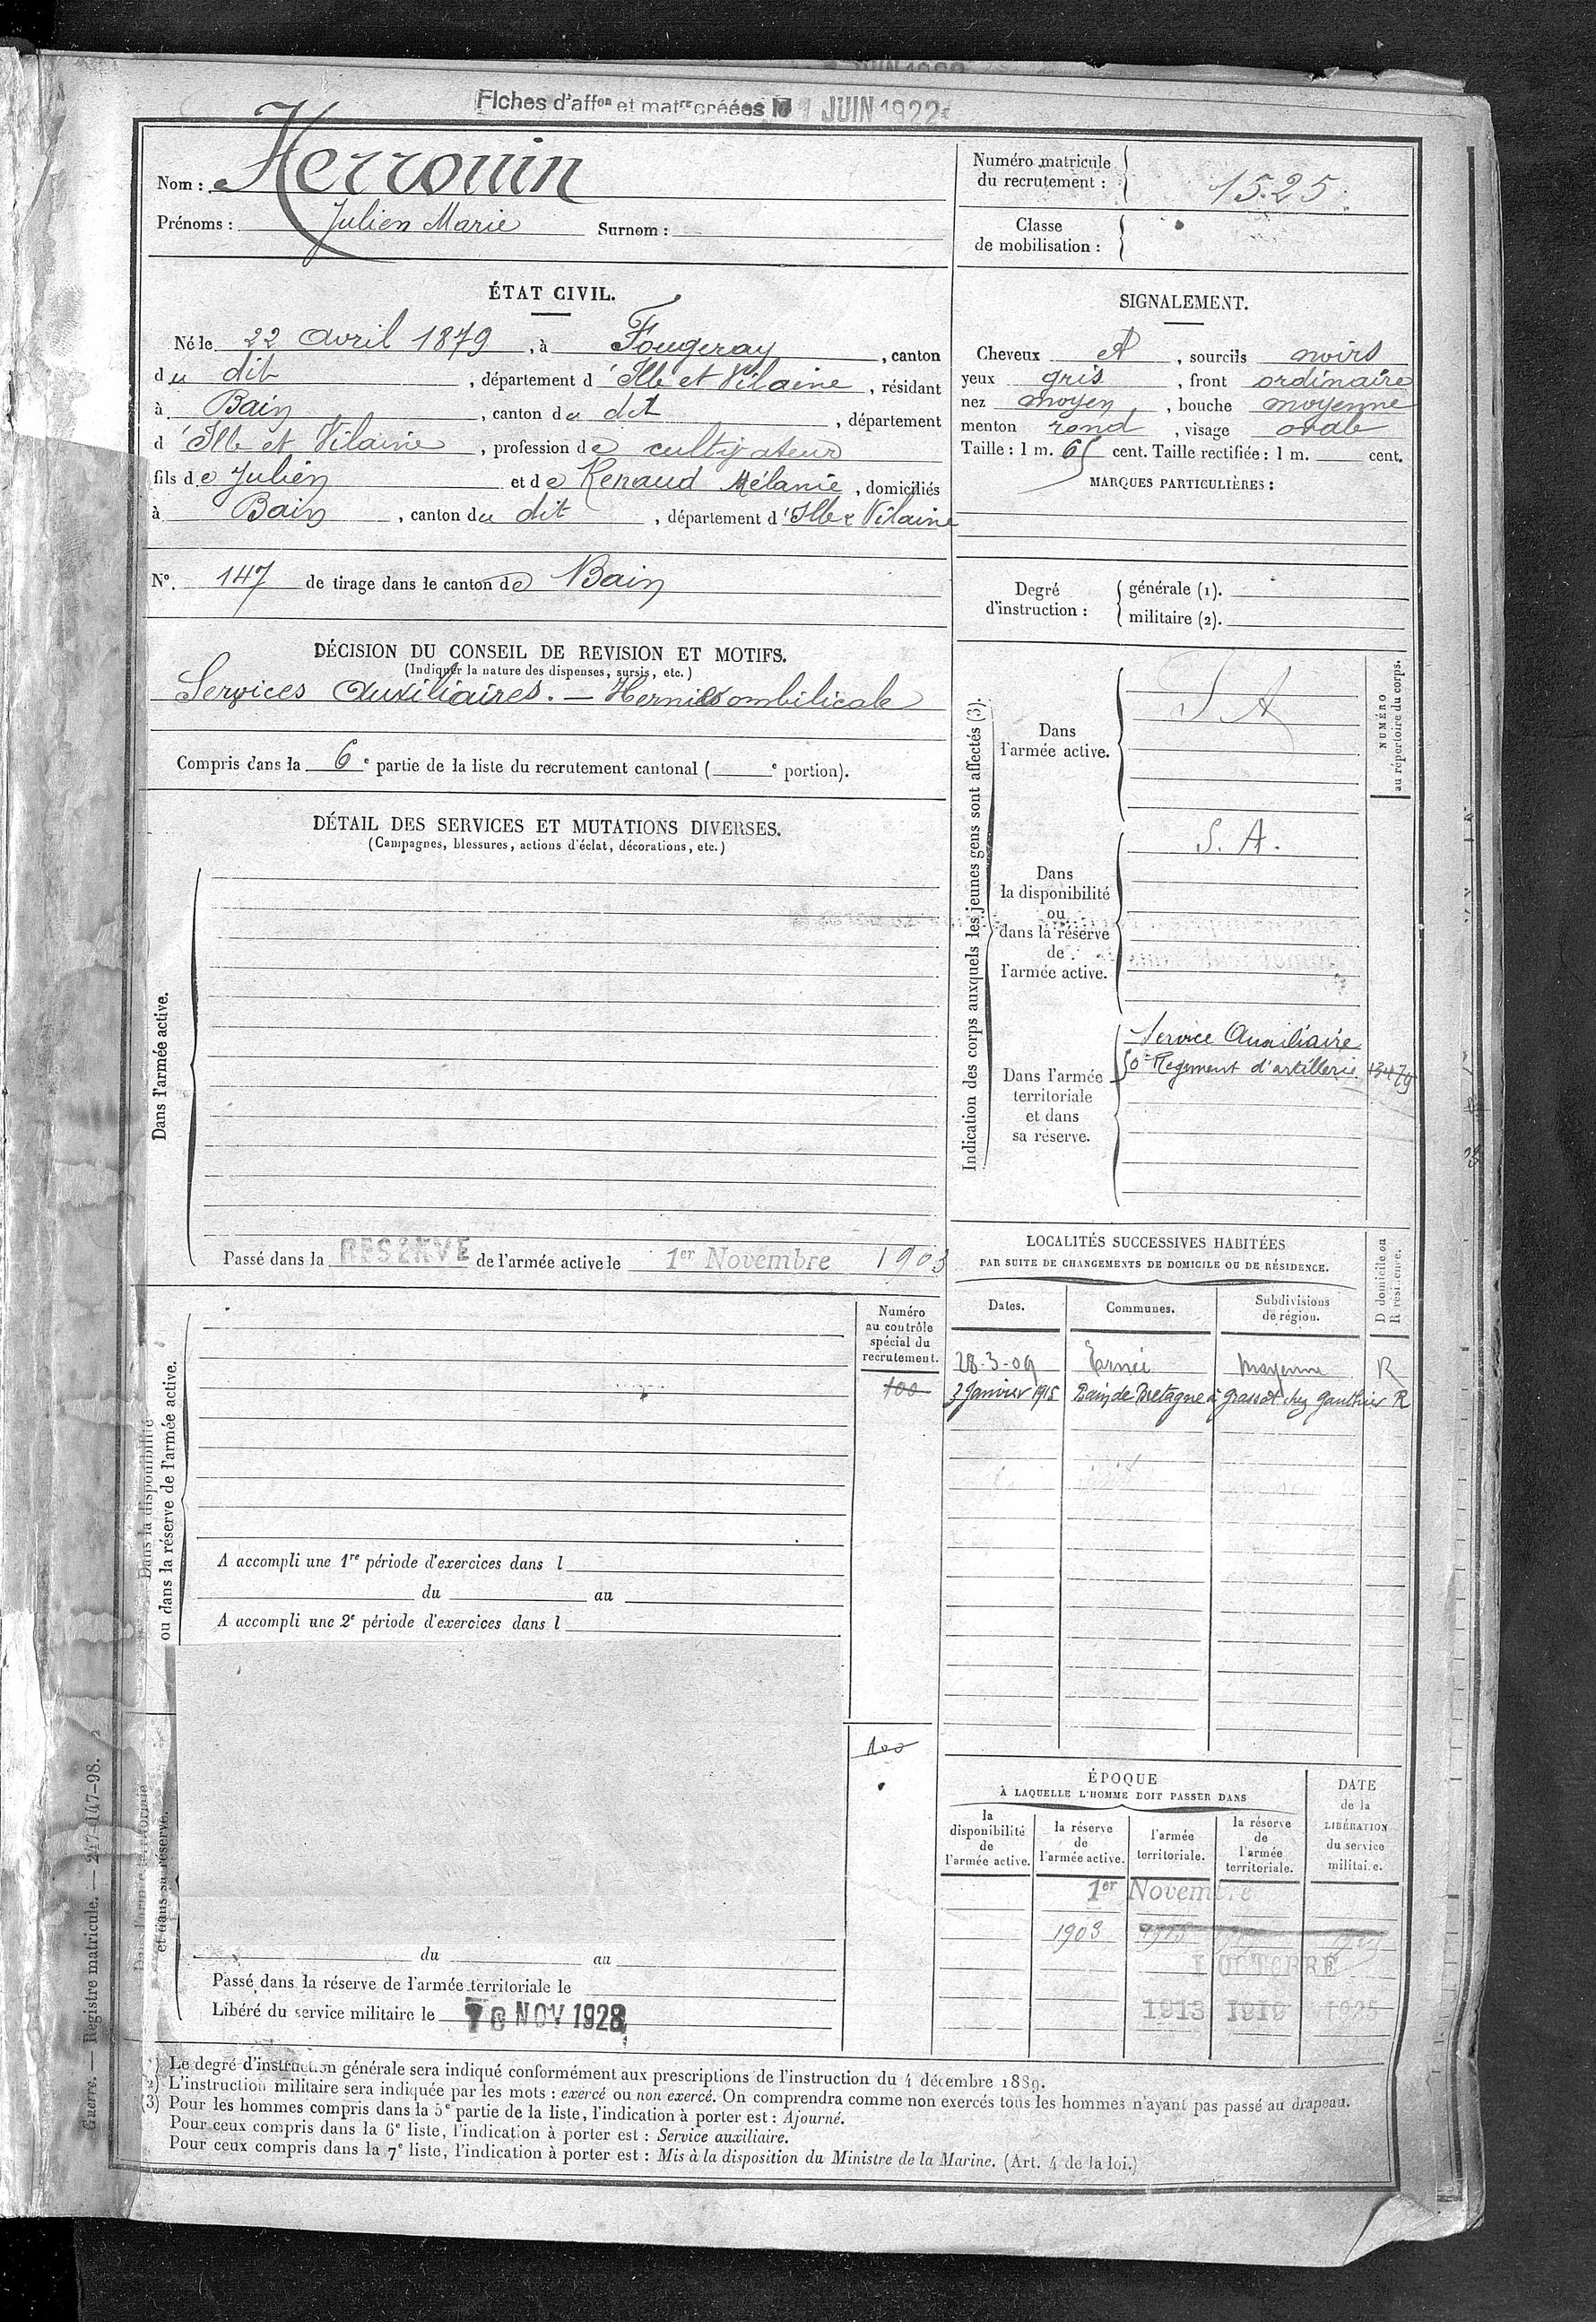 Fiches d'affon et matre créées le 1 JUIN 1922
Nom : Herrouin
Prénoms : Julien Marie Surnom :
Numéro matricule du recrutement : 1525
Classe de mobilisation :
ÉTAT CIVIL.
Né le 22 avril 1879, à Fougeray, canton
du dit, département d'Ille et Vilaine, résidant
à Bain, canton du dit, département
d'Ille et Vilaine, profession de cultivateur
fils de Julien et de Renaud Mélanie, domiciliés
à Bain, canton du dit, département d'Ille & Vilaine
N°. 147 de tirage dans le canton de Bain
SIGNALEMENT.
Cheveux , sourcils noirs
yeux gris, front ordinaire
nez moyen, bouche moyenne
menton rond, visage ovale
Taille : 1 m. 65 cent. Taille rectifiée : 1 m. cent.
MARQUES PARTICULIÈRES :
Degré d'instruction : générale (1).
militaire (2).
DÉCISION DU CONSEIL DE REVISION ET MOTIFS.
(Indiquer la nature des dispenses, sursis, etc.)
Services Auxiliaires. — Hernie ombilicale
Compris dans la 6e partie de la liste du recrutement cantonal ( e portion).
DÉTAIL DES SERVICES ET MUTATIONS DIVERSES.
(Campagnes, blessures, actions d'éclat, décorations, etc.)
Dans l'armée active.
Passé dans la RESERVE de l'armée active le 1er Novembre 1903
Indication des corps auxquels les jeunes gens sont affectés (3).
NUMÉRO au répertoire du corps.
Dans l'armée active.
S A
Dans la disponibilité ou dans la réserve de l'armée active.
S. A.
Dans l'armée territoriale et dans sa réserve.
Service Auxiliaire
50e Régiment d'artillerie
LOCALITÉS SUCCESSIVES HABITÉES
PAR SUITE DE CHANGEMENTS DE DOMICILE OU DE RÉSIDENCE.
D domicile ou R résidence.
Dates. Communes. Subdivisions de région.
28-3-09 Ernée Mayenne R
3 Janvier 1915 Bain de Bretagne à Grassot chez Gauthier R
Dans la disponibilité
ou dans la réserve de l'armée active.
Numéro
au contrôle
spécial du
recrutement.
100
A accompli une 1re période d'exercices dans l
du au
A accompli une 2e période d'exercices dans l
100
Dans l'armée territoriale
et dans sa réserve.
du au
Passé dans la réserve de l'armée territoriale le
Libéré du service militaire le 10 NOV 1928
ÉPOQUE
À LAQUELLE L'HOMME DOIT PASSER DANS
la disponibilité de l'armée active.
la réserve de l'armée active.
l'armée territoriale.
la réserve de l'armée territoriale.
DATE de la LIBÉRATION du service militaire.
1er Novembre
1903 1913
1 OCTOBRE
1913 1919 1925
(1) Le degré d'instruction générale sera indiqué conformément aux prescriptions de l'instruction du 4 décembre 1889.
(2) L'instruction militaire sera indiquée par les mots : exercé ou non exercé. On comprendra comme non exercés tous les hommes n'ayant pas passé au drapeau.
(3) Pour les hommes compris dans la 5e partie de la liste, l'indication à porter est : Ajourné.
Pour ceux compris dans la 6e liste, l'indication à porter est : Service auxiliaire.
Pour ceux compris dans la 7e liste, l'indication à porter est : Mis à la disposition du Ministre de la Marine. (Art. 4 de la loi.)
Guerre. — Registre matricule. — 247-147-98.